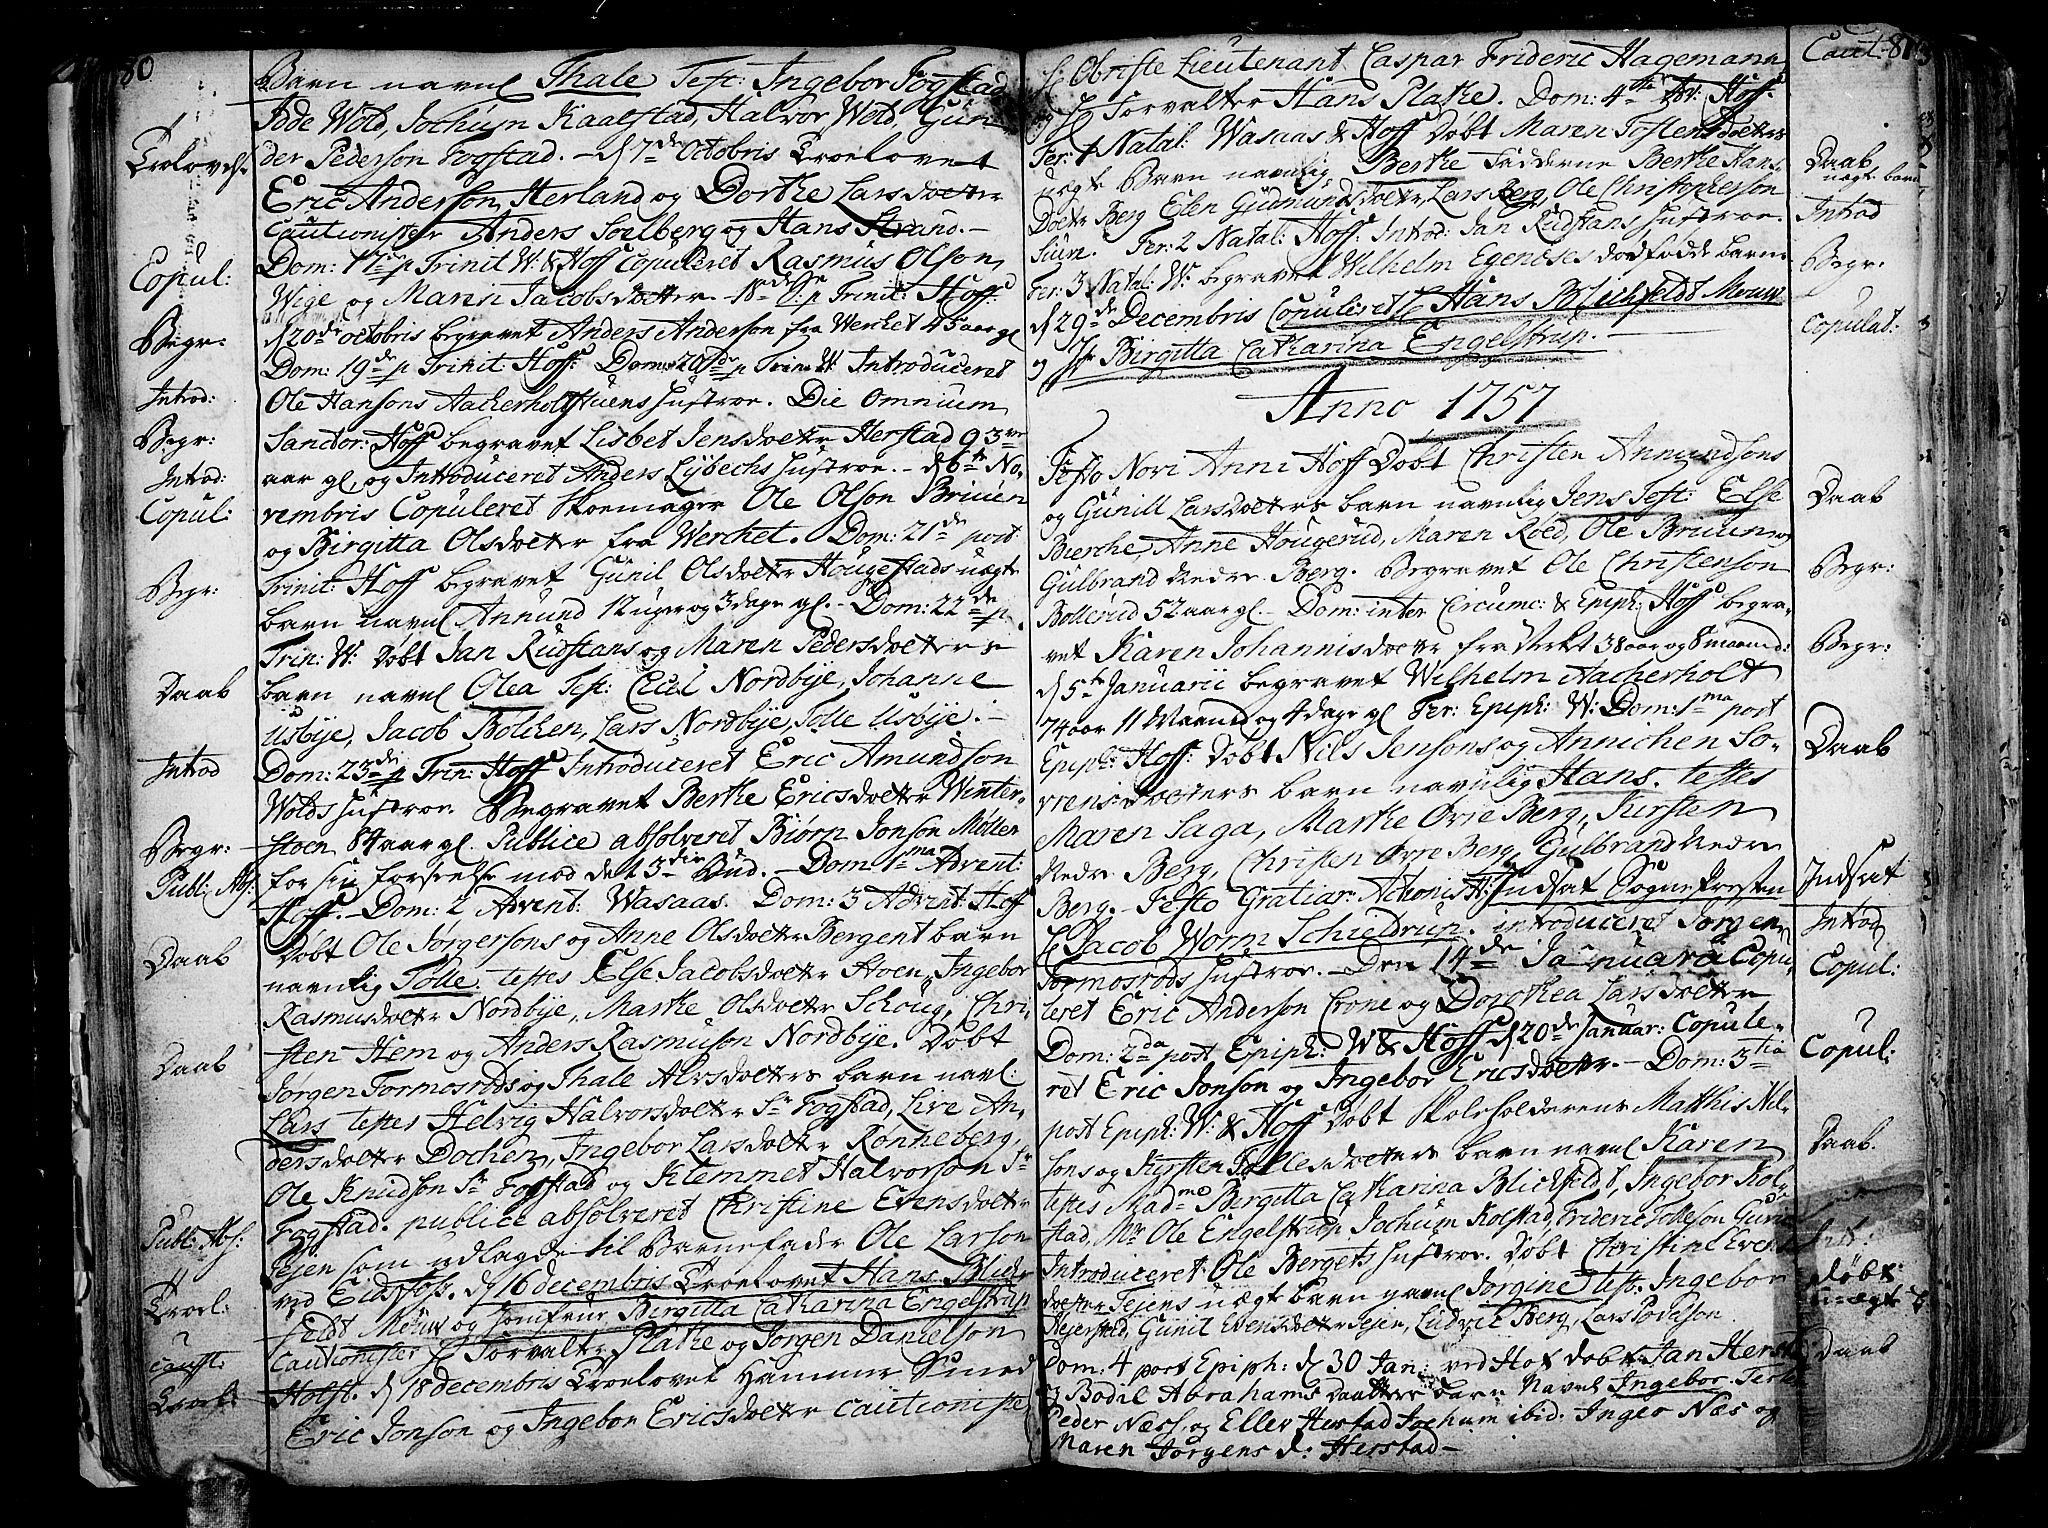 80
Barn navnl Thale Test: Ingebor Fogstad
Idde Wold, Jochum Kaalstad, Halvor Wold, Gun-
der Pederson Fogstad. - d 7de Octobris Troelovet
Troelovels:
Eric Anderson Herland og Dorthe Larsdoetter
Cautionister Anders Soelberg og Hans Strand. -
Dom: 17de p Trinit W: & Hoff Copuleret Rasmus Olson
Copul:
Wige og Maren Jacobsdoetter. 18de p Trinit: Hoff:
d 20de octobris begravet Anders Anderson fra Werchet 45 aar gl
Begr:
Dom: 19de p Trinit Hoff: Dom: 20de p Trin: W: Introduceret
Introd:
Ole Hansons Aackerholtstuens Hustroe. Die Omnium
Begr:
Sanctor: Hoff begravet Lisbet Jensdoetter Herstad 93
Introd:
aar gl, og Introduceret Anders Lybechs Hustroe. - d 6te No-
Copul:
vembris Copuleret Skoemager Ole Olson Bruuen
og Birgitta Olsdoetter fra Werchet. Dom: 21de post
Begr:
Trinit: Hoff begravet Gunil Olsdoetter Hougestads uægte
barn navnl Amund 12 uger og 3 dage gl. - Dom: 22de p
Trin: W: Døbt Jan Rudstans og Maren Pedersdoetters
Daab
barn navnl Olea Test: Cicil Nordbye, Johanne
Usbye, Jacob Bolchen, Lars Nordbye, Tolle Usbye. -
Introd
Dom: 23die p Trin: Hoff Introduceret Eric Amundson
Wolds Hustroe. Begravet Berthe Ericsdoetter Winter-
Begr:
stoen 84 aar gl. Publice absolveret Biørn Jonson Møllen
Publ: Abs:
for sin forseelse mod det 3die Bud. - Dom 1ma Advent:
Hoff. - Dom: 2 Advent: Wasaas. Dom: 3 Advent: Hoff
Daab
Døbt Ole Jørgersons og Anne Olsdoetter Bergent barn
navnlig Tolle testes Else Jacobsdoetter Stoen, Ingebor
Rasmusdoetter Nordbye, Marthe Olsdoetter Schoug, Chri-
sten Hem og Anders Rasmuson Nordbye. Døbt
Daab
Jørgen Formosrøds og Thale Alvsdoetters barn navl:
Lars testes Helvig Halvorsdoetter Sr Fogstad, Live An-
dersdoetter Dochen, Ingebor Larsdoetter Rønneberg,
Ole Knudson Sr Fogstad og Klemmet Halvorson Sr
Fogstad. publice absolveret Christine Evensdoetter
Publ: Abs:
Tejen som udlagde til Barnefader Ole Larson
ved Eidsfoss. d 16 decembris Troelovet Hans Blich-
Troel:
feldt Meuw og Jomfrue Birgitta Catharina Engelstrup
caust:
Cautionister Sr Forvalter Plathe og Jørgen Danielson
Holst. d 18 decembris Troelovet Hammer Smed
Troel:
Eric Jonson og Ingebor Ericsdoetter cautioniste
Sr Obriste Lieutenant Caspar Frideric Hagemann
Caut: 81
og Sr Forvalter Hans Plathe. Dom: 4the Adv: Hoff.
Fer: 1 Natal: Wasaas & Hoff Døbt Maren Tostensdoetters
Daab
uægte barn
uegte Barn navnlig Berthe Fadderne Berthe Hans
Doetr Berg Elen Gudmundsdoetr, Lars Berg, Ole Christopherson
Introd
Suin. Fer: 2 Natal: Hoff: Introd: Jan Rudstans Hustroe.
Begr:
Fer: 3 Natal: W: begravet Wilhelm Egenæses dødfødde barn
d 29de Decembris Copuleret Sr Hans Blichfeldt Meuw
Copulat:
og Jfr Birgitta Catharina Engelstrup. -
Anno 1757
Festo Novi Anni Hoff Døbt Christen Amundsons
Daab
og Gunill Larsdoeters barn navnlig Jens Test: Else
Bierche, Anne Hougerud, Maren Roed, Ole Bruun og
Gulbrand Nedre Berg. Begravet Ole Christenson
Begr:
Bollerud 52 aar gl. - Dom: inter Circumc: & Epiph: Hoff begra-
vet Karen Johannisdoetter fra Verket 38 aar og 8 maaned:
Begr:
d 5te Januarii begravet Wilhelm Aacherholt
74 aar 11 Maaned og 4 dage gl Fer: Epiph: W: Dom: 1ma post
Epiph: Hoff: Døbt Nils Jensons og Annichen Sø-
Daab
vrensdoetters barn navnlig Hans. testes
Maren Saga, Marthe Øvre Berg, Kirsten
Nedre Berg, Christen Øvre Berg, Gulbrand Nedre
Berg. - Festo Gratiar: Actionis H: Indsat Sogne Presten
Indsat
Sr Jacob Worm Schieldrup. introduceret Jørgen
Introd
Formosrøds Hustroe. - Den 14de Januarii Copu-
Copul:
leret Eric Anderson Crone og Dorothea Larsdoetter
Dom: 2da post Epiph: W & Hoff d 20de Januar: Copule-
Copul:
ret Eric Jonson og Ingebor Ericsdoetter. - Dom: 3tia
post Epiph: W: & Hoff Døbt Skoleholderens Matthis Nil-
Daab.
sons og Kirsten Tollesdoetters barn navnl Karen
testes Madme Birgitta Catharina Blichfeldt, Ingebor Kol-
stad, Mr Ole Engelstrup, Jochum Kolstad, Frideric Tolleson Gun
Int:
Introduceret Ole Bergets Hustroe. Døbt Christine Evens
døbt
uægte b
doetter Tejens uægt barn navnl Jørgine test. Ingebor
Hejersted, Gunil Evensdoetter Tejen, Ludvil Berg, Lars Povelson
Dom: 4 post Epiph: d 30 Jan: ved Hof døbt Jan Herst
Daab
og Bodil Abrahams Daatter barn Navnl Ingebor Testes
Peder Næss, og Eller Herstad Jochum ibid: Inger Næs og
Maren Jørgens d: Herstad -